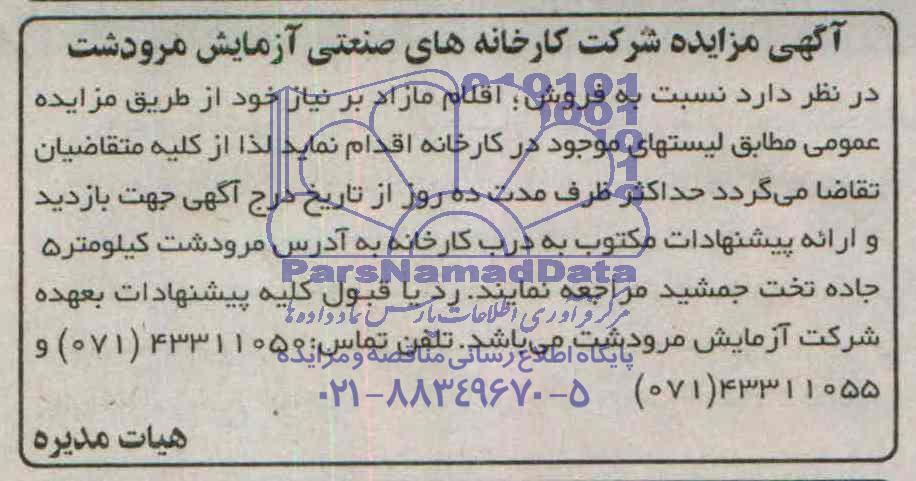 آگهی مزایده شرکت کارخانه های صنعتی آزمایش مرودشت
در نظر دارد نسبت به فروش؛ اقلام مازاد بر نیاز خود از طریق مزایده
عمومی مطابق لیستهای موجود در کارخانه اقدام نماید لذا از کلیه متقاضیان
تقاضا می‌گردد حداکثر ظرف مدت ده روز از تاریخ درج آگهی جهت بازدید
و ارائه پیشنهادات مکتوب به درب کارخانه به آدرس مرودشت کیلومتر۵
ParsNamadData
جاده تخت جمشید مراجعه نمایند. رد یا قبول کلیه پیشنهادات بعهده
مرکز فرآوری اطلاعات پارس نماد داده ها
شرکت آزمایش مرودشت می‌باشد. تلفن تماس: ۴۳۳۱۱۰۵۰ (۰۷۱) و
پایگاه اطلاع رسانی مناقصه و مزایده
۴۳۳۱۱۰۵۵(۰۷۱)
۰۲۱-۸۸۳۴۹۶۷۰-۵
هیات مدیره